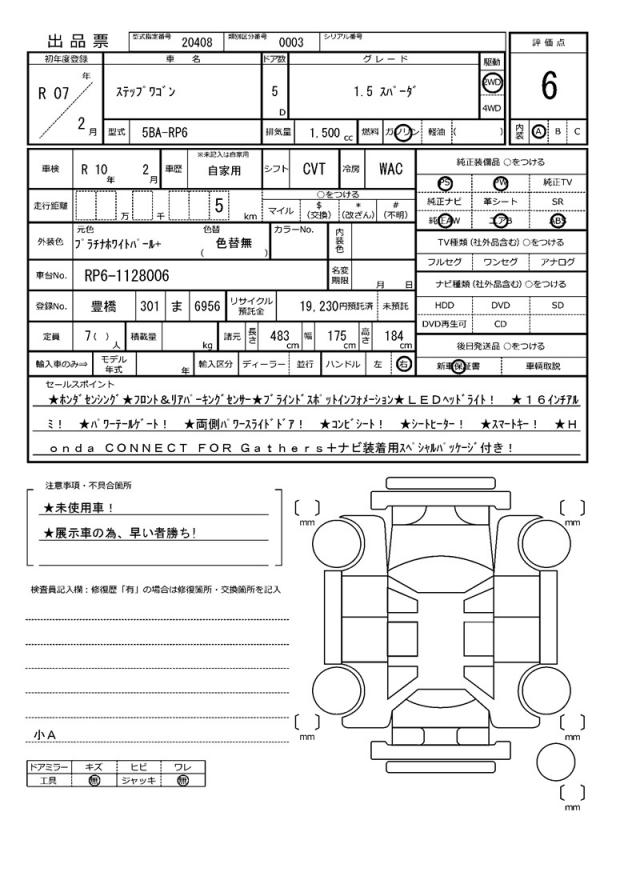 出品票 型式指定番号 20408 類別区分番号 0003 シリアル番号
評価点
6
内装 A B C
初年度登録 車名 ドア数 グレード 駆動
R 07 年 2 月 ステップワゴン 5 D 1.5 スパーダ 2WD 4WD
型式 5BA-RP6 排気量 1,500 cc 燃料 ガソリン 軽油 ( )
車検 R 10 年 2 月 車歴 ※未記入は自家用 自家用 シフト CVT 冷房 WAC
走行距離 万 千 5 km ○をつける
マイル $ (交換) * (改ざん) # (不明)
外装色 元色 プラチナホワイトパール+ 色替 ( 色替無 ) カラーNo. 内装色
車台No. RP6-1128006 名変期限 月 日
登録No. 豊橋 301 ま 6956 リサイクル預託金 19,230円預託済 未預託
定員 7( ) 人 積載量 kg 諸元 長さ 483 cm 幅 175 cm 高さ 184 cm
輸入車のみ⇒ モデル年式 年 輸入区分 ディーラー 並行 ハンドル 左 右
純正装備品 ○をつける
PS PW 純正TV
純正ナビ 革シート SR
純正AW エアB ABS
TV種類 (社外品含む) ○をつける
フルセグ ワンセグ アナログ
ナビ種類 (社外品含む) ○をつける
HDD DVD SD
DVD再生可 CD
後日発送品 ○をつける
新車保証書 車輌取説
セールスポイント
★ホンダセンシング★フロント&リアパーキングセンサー★ブラインドスポットインフォメーション★ＬＥＤヘッドライト！ ★１６インチアル
ミ！ ★パワーテールゲート！ ★両側パワースライドドア！ ★コンビシート！ ★シートヒーター！ ★スマートキー！ ★Ｈ
ｏｎｄａ ＣＯＮＮＥＣＴ ＦＯＲ Ｇａｔｈｅｒｓ＋ナビ装着用スペシャルパッケージ付き！
注意事項・不具合箇所
★未使用車！
★展示車の為、早い者勝ち!
検査員記入欄：修復歴「有」の場合は修復箇所・交換箇所を記入
小Ａ
ドアミラー キズ ヒビ ワレ
工具 無 ジャッキ 無
[ ] mm
[ ] mm
[ ] mm
[ ] mm
[ ] mm